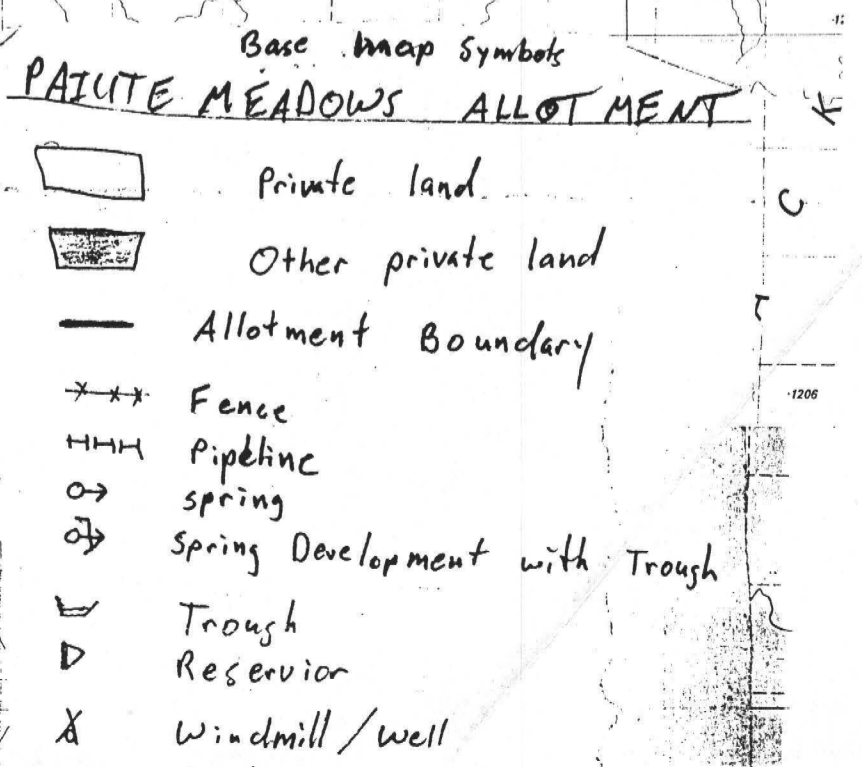 Base map Symbols
PAIUTE MEADOWS ALLOTMENT
Private land
Other private land
Allotment Boundary
Fence
Pipeline
spring
Spring Development with Trough
Trough
Reservior
Windmill / well
K
C
T
·1206